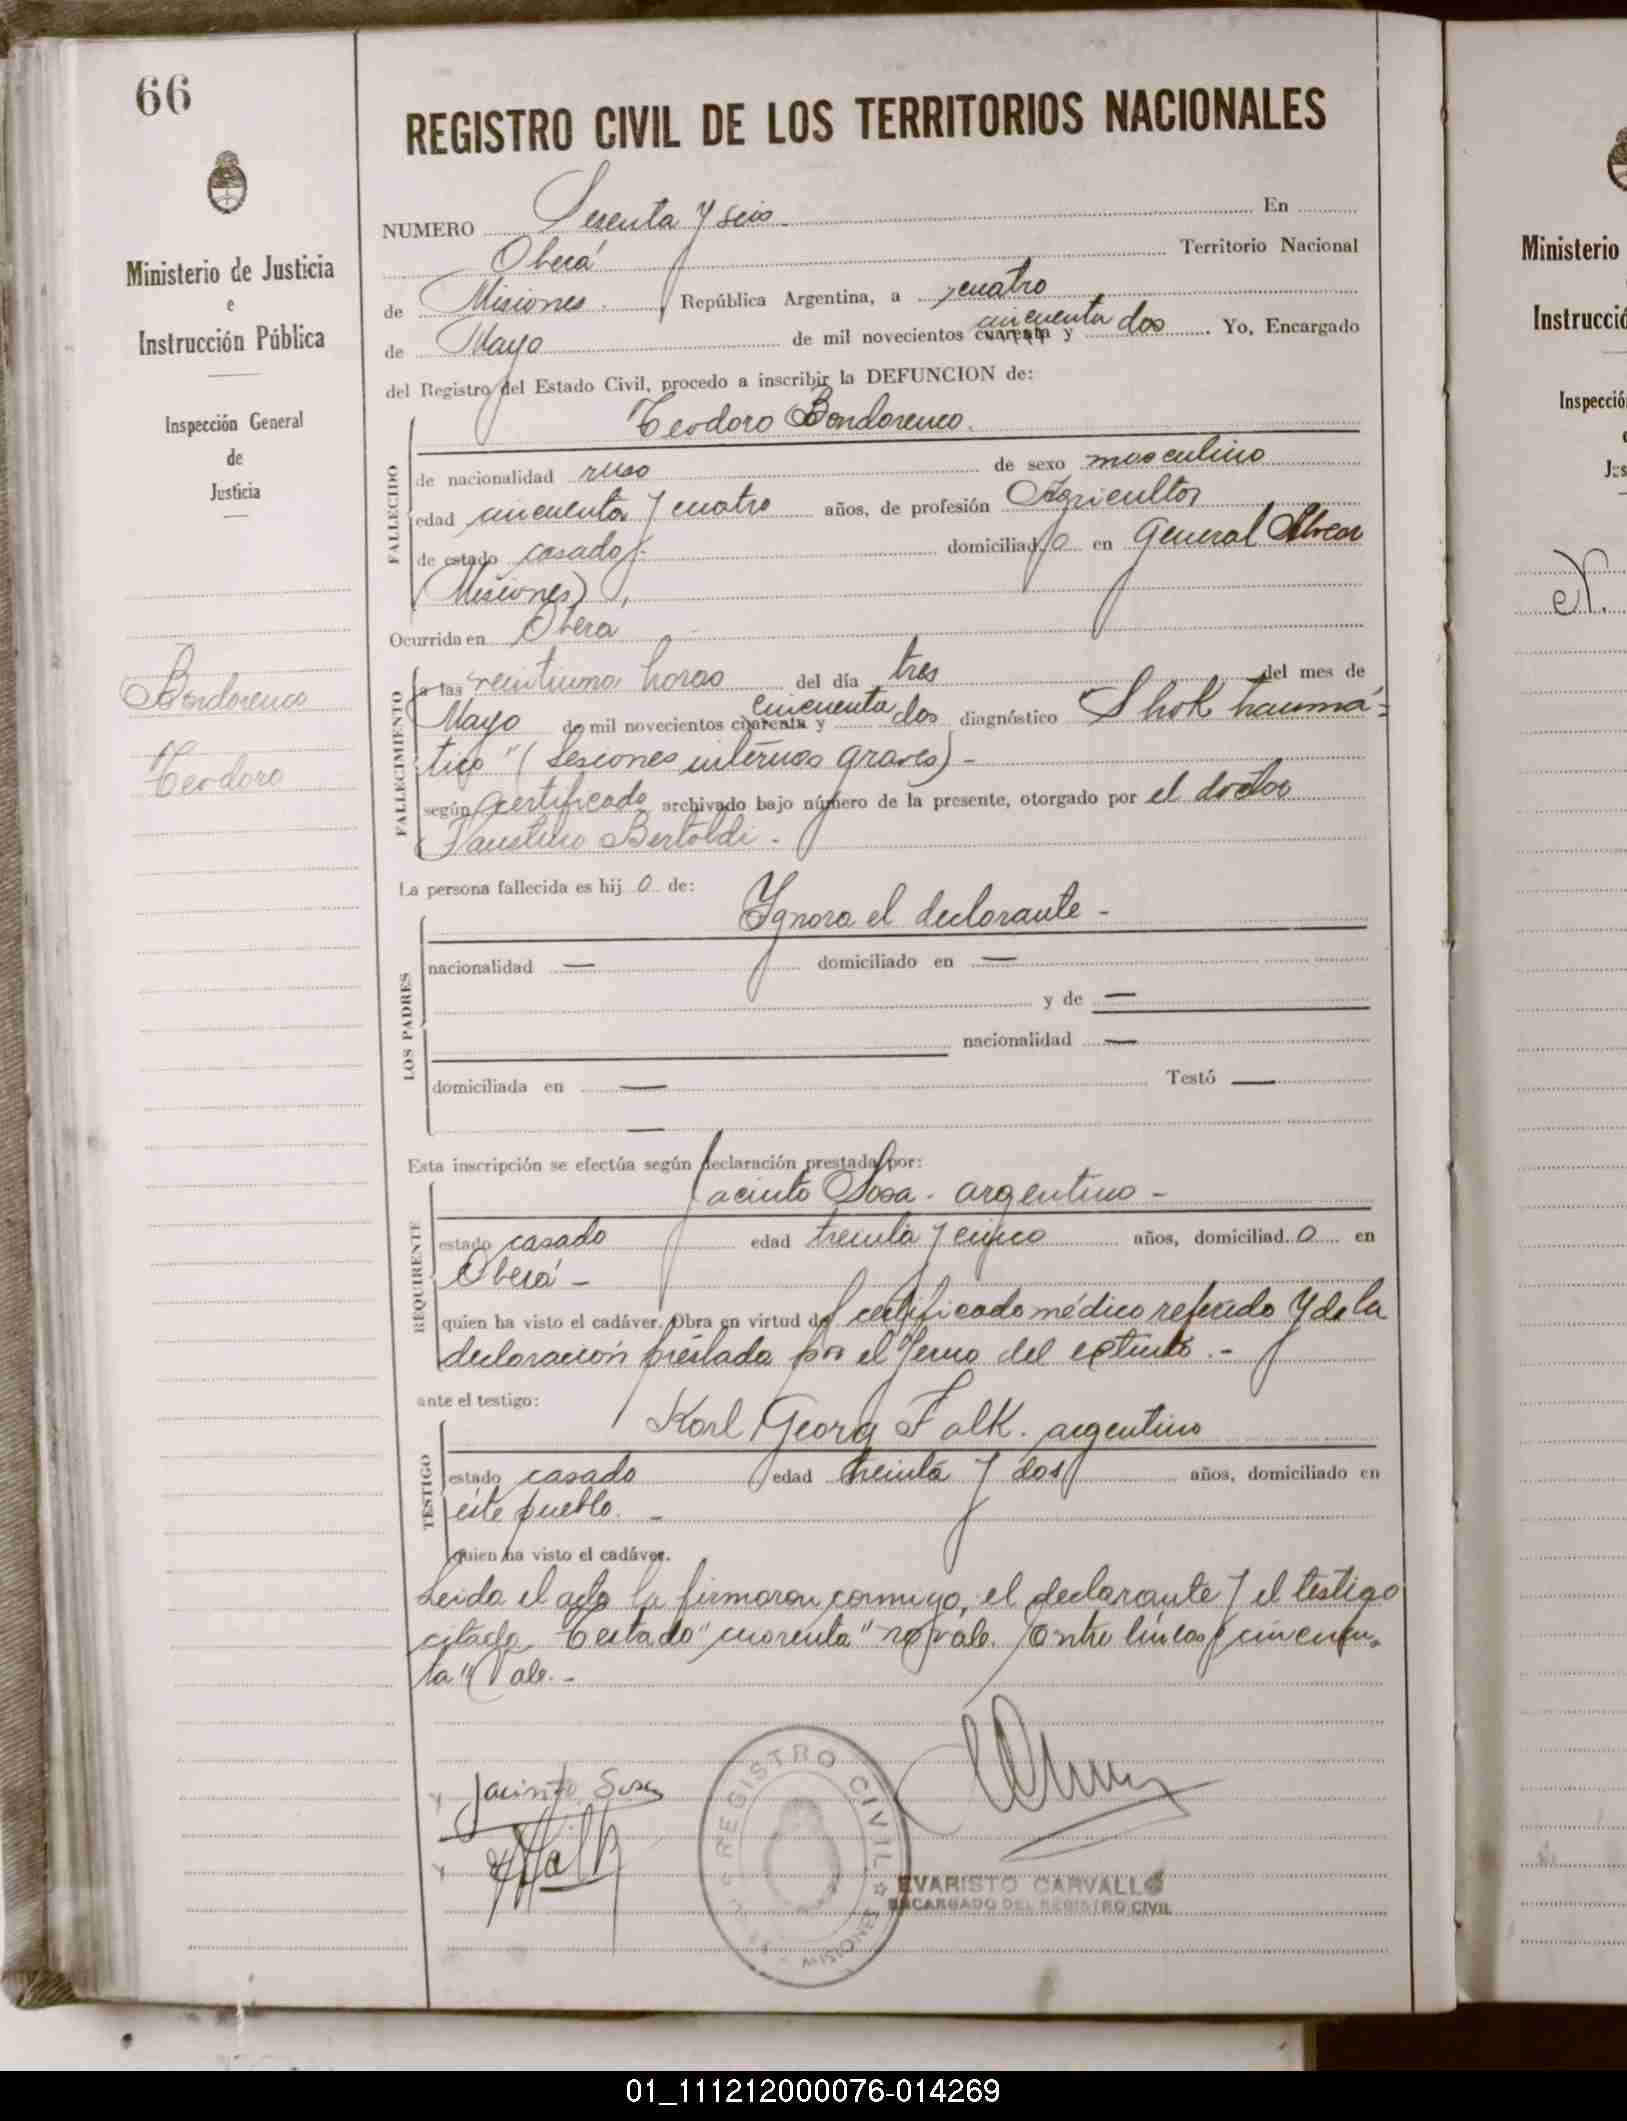 66
REGISTRO CIVIL DE LOS TERRITORIOS NACIONALES
Ministerio de Justicia
e
Instrucción Pública
Inspección General
de
Justicia
Bondorenco
Teodoro
NUMERO Sesenta y seis En
Oberá Territorio Nacional
de Misiones República Argentina, a cuatro
de Mayo de mil novecientos cuarenta cincuenta y dos. Yo, Encargado
del Registro del Estado Civil, procedo a inscribir la DEFUNCION de:
Teodoro Bondorenco.
FALLECIDO
de nacionalidad ruso de sexo masculino
edad cincuenta y cuatro años, de profesión Agricultor
de estado casado domiciliado en General Alvear
(Misiones),
Ocurrida en Oberá
FALLECIMIENTO
a las veintiuna horas del día tres del mes de
Mayo de mil novecientos cuarenta cincuenta y dos diagnóstico "Shok traumá-
tico" (Lesiones internas graves) -
según certificado archivado bajo número de la presente, otorgado por el doctor
Faustino Bertoldi.
La persona fallecida es hijo de:
LOS PADRES
Ygnora el declarante -
nacionalidad — domiciliado en —
y de —
nacionalidad —
domiciliada en — Testó —
—
Esta inscripción se efectúa según declaración prestada por:
REQUIRENTE
Jacinto Sosa. argentino -
estado casado edad treinta y cinco años, domiciliado en
Oberá -
quien ha visto el cadáver. Obra en virtud del certificado médico referido y de la
declaración prestada por el yerno del extinto. -
ante el testigo:
TESTIGO
Karl Georg Falk. argentino
estado casado edad treinta y dos años, domiciliado en
este pueblo. -
quien ha visto el cadáver.
Leida el acta la firmaron conmigo, el declarante y el testigo
citado. Testado "cuarenta" no vale. Entre líneas "cincuen-
ta" Vale. -
Jacinto Sosa
Falk
REGISTRO CIVIL
MISIONES
EVARISTO CARVALLO
ENCARGADO DEL REGISTRO CIVIL
Ministerio
Instrucció
Inspecció
Jus
N.
01_111212000076-014269